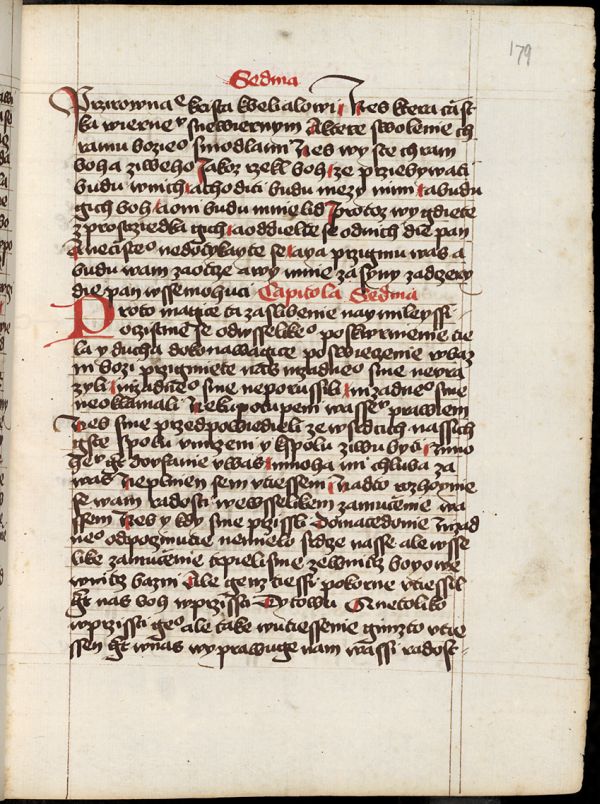 179
Sedma
Przirownae krista kbelialowi Nes ktera cast
ka wierneº snewiernym Aktere swolenie ch
ramu bozieº smodlami Nes wy ste chram
boha ziweho Jakoz rzekl boh ze przebywati
budu wnich achoditi budu mezy nimi abudu
gich boh aoni budu mnie lid Protoz wy gdiete
z prostrziedka gich aoddielte se odnich die pan
Anecisteº nedotykayte se aya przigmu was a
budu wam zaotcze awy mnie za syny zadczery
die pan wssemohuci Capitola Sedma
Proto magice ta zaslibenie nay mileyssi
ocistme se odwsselikeº poskwrnienie tie
la y ducha dokonawagice poswiecenie wbaz
ni bozi przigmiete nas nizadneº sme neura
zyli nizadneº sme neporussili nizadneº sme
neoklamali Nekupotupeni wasseº prawiem
Nes sme przedpowiedieli ze wsrdcich nassich
gste spolu umrzem y kspolu ziwu byti mno
he gt dowfanie uwas mnoha mi chluba za
was Neplnien sem utiessem nadto rozhoynie
se wam radosti wewsselikem zamucenie na
ssem Nes y kdy sme przissli Domacedonie nizad
neº odpoczinutie nemielo srdze nasse ale wsse
like zamucenie trpielisme zewnitz boyowe
wnitz bazni Ale genz tiessi pokorne utiessil
gt nas boh wprzissti Tytowu Anetoliko
wprzissti geº ale take wutiessenie gimzto utie
ssen gt wnas wyprawuge nam wassi radost